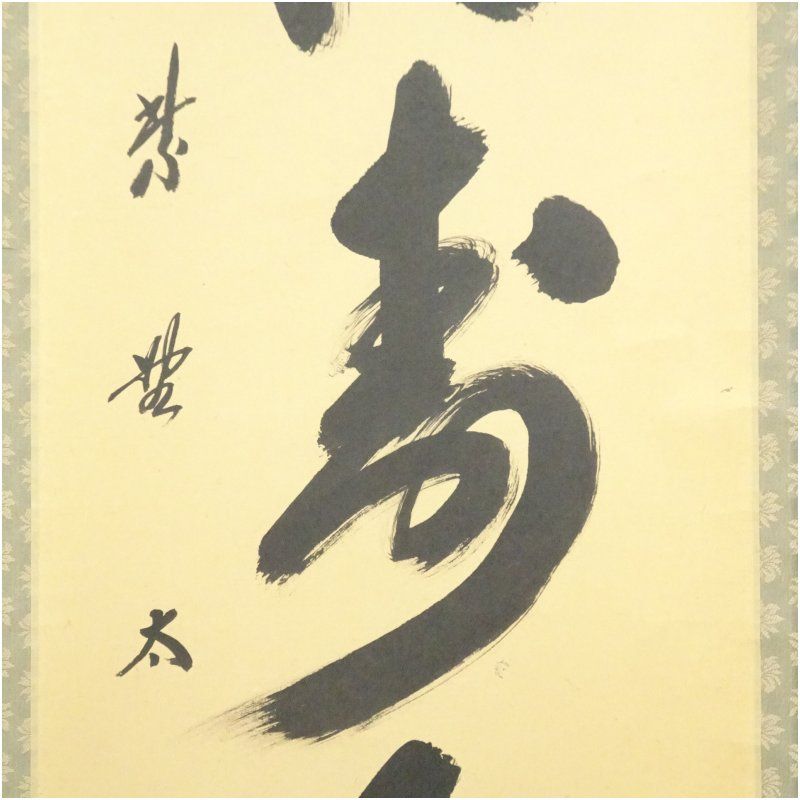 寿
紫野太